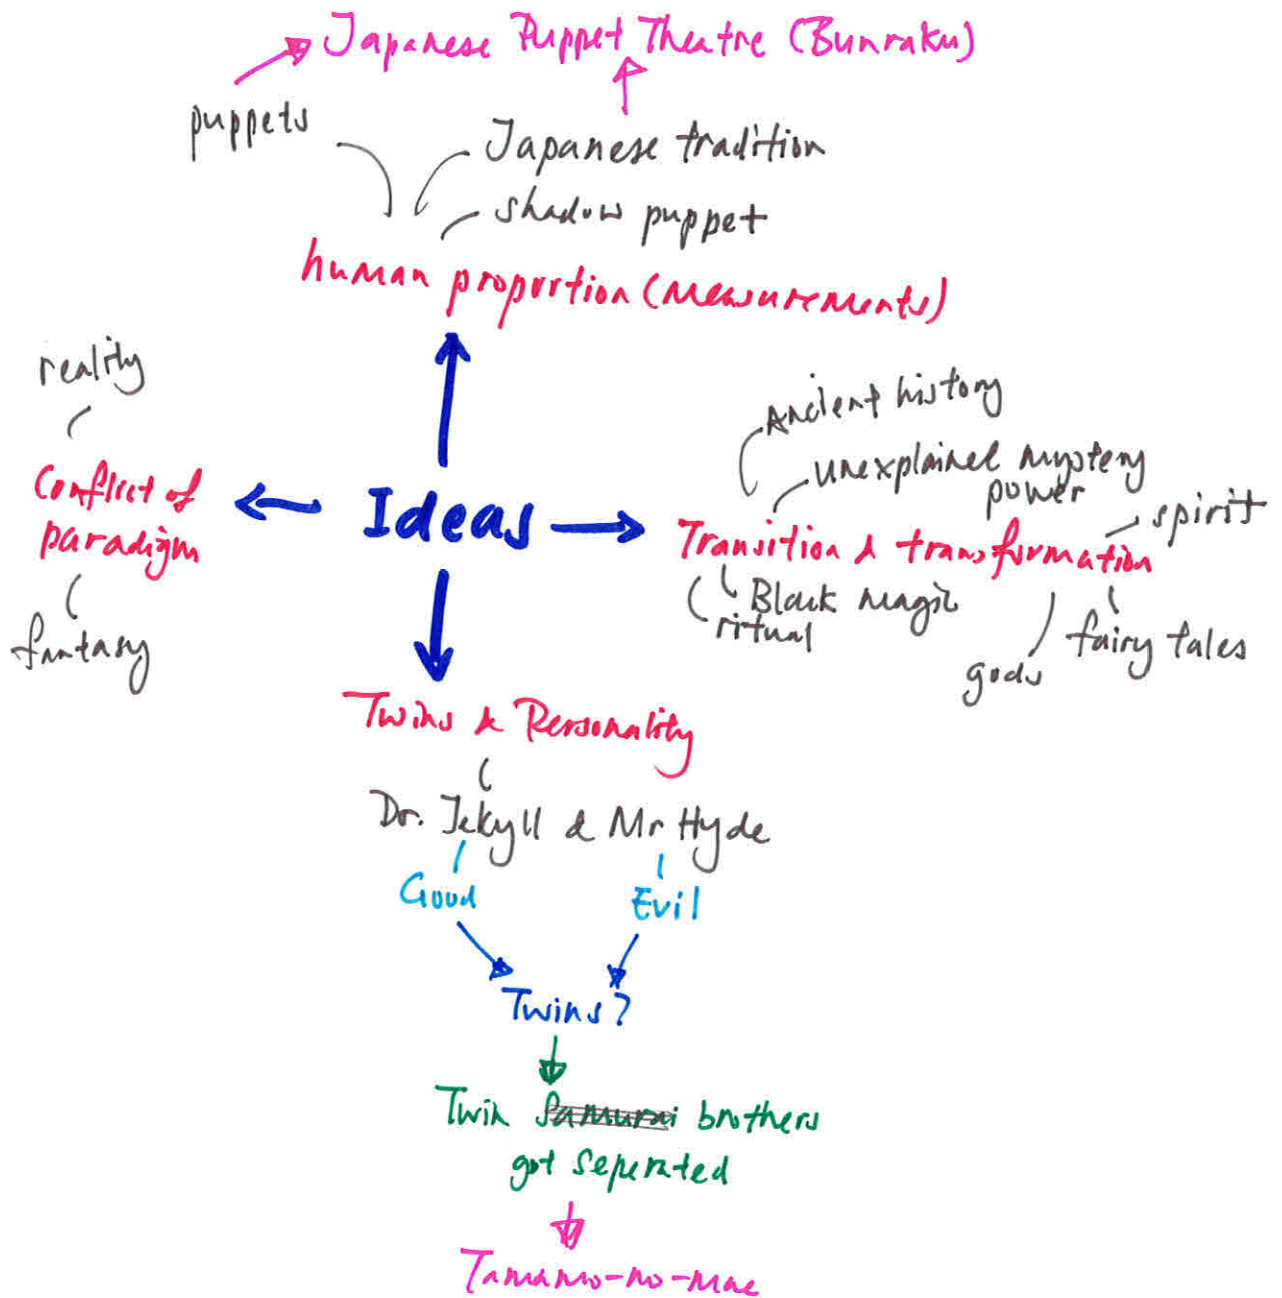 Japanese Puppet Theatre (Bunraku)
puppets
Japanese tradition
shadow puppet
human proportion (measurements)
reality
Conflict of
paradigm
fantasy
Ideas
Ancient history
unexplained mystery
power
spirit
Transition & transformation
Black magic
ritual
gods
fairy tales
Twins & Personality
Dr. Jekyll & Mr Hyde
Good
Evil
Twins?
Twin Samurai brothers
got seperated
Tamamo-no-mae